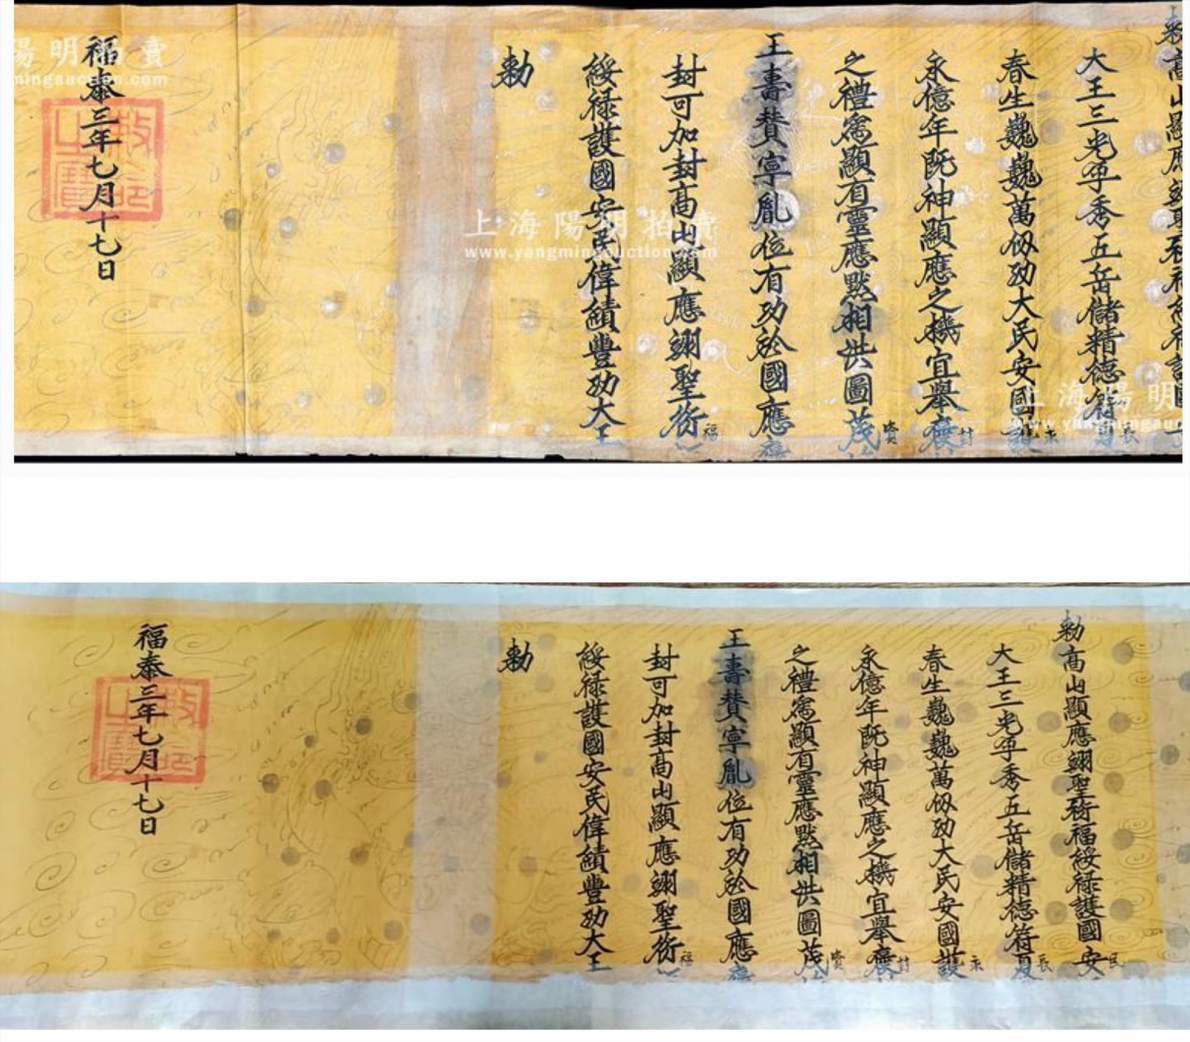 敕高山顯應翊聖
大王三光孚秀五岳儲精德符
長
春生巍巍萬仭功大民安國護
永
永億年既神顯應之機宜舉
封
之禮爲顯有靈應默相洪圖茂
賚
王壽賛寧胤位有功於國應
封可加封高山顯應翊聖衍
福
綏禄護國安民偉績豐功大王
敕
福泰三年七月十七日
敕命之寶
上海陽明拍賣
www.yangmingauction.com
敕高山顯應翊聖衍福綏禄護國安
民
大王三光孚秀五岳儲精德符
長
春生巍巍萬仭功大民安國護
永
永億年既神顯應之機宜舉
封
之禮爲顯有靈應默相洪圖茂
賚
王壽賛寧胤位有功於國應
封可加封高山顯應翊聖衍
福
綏禄護國安民偉績豐功大王
敕
福泰三年七月十七日
敕命之寶